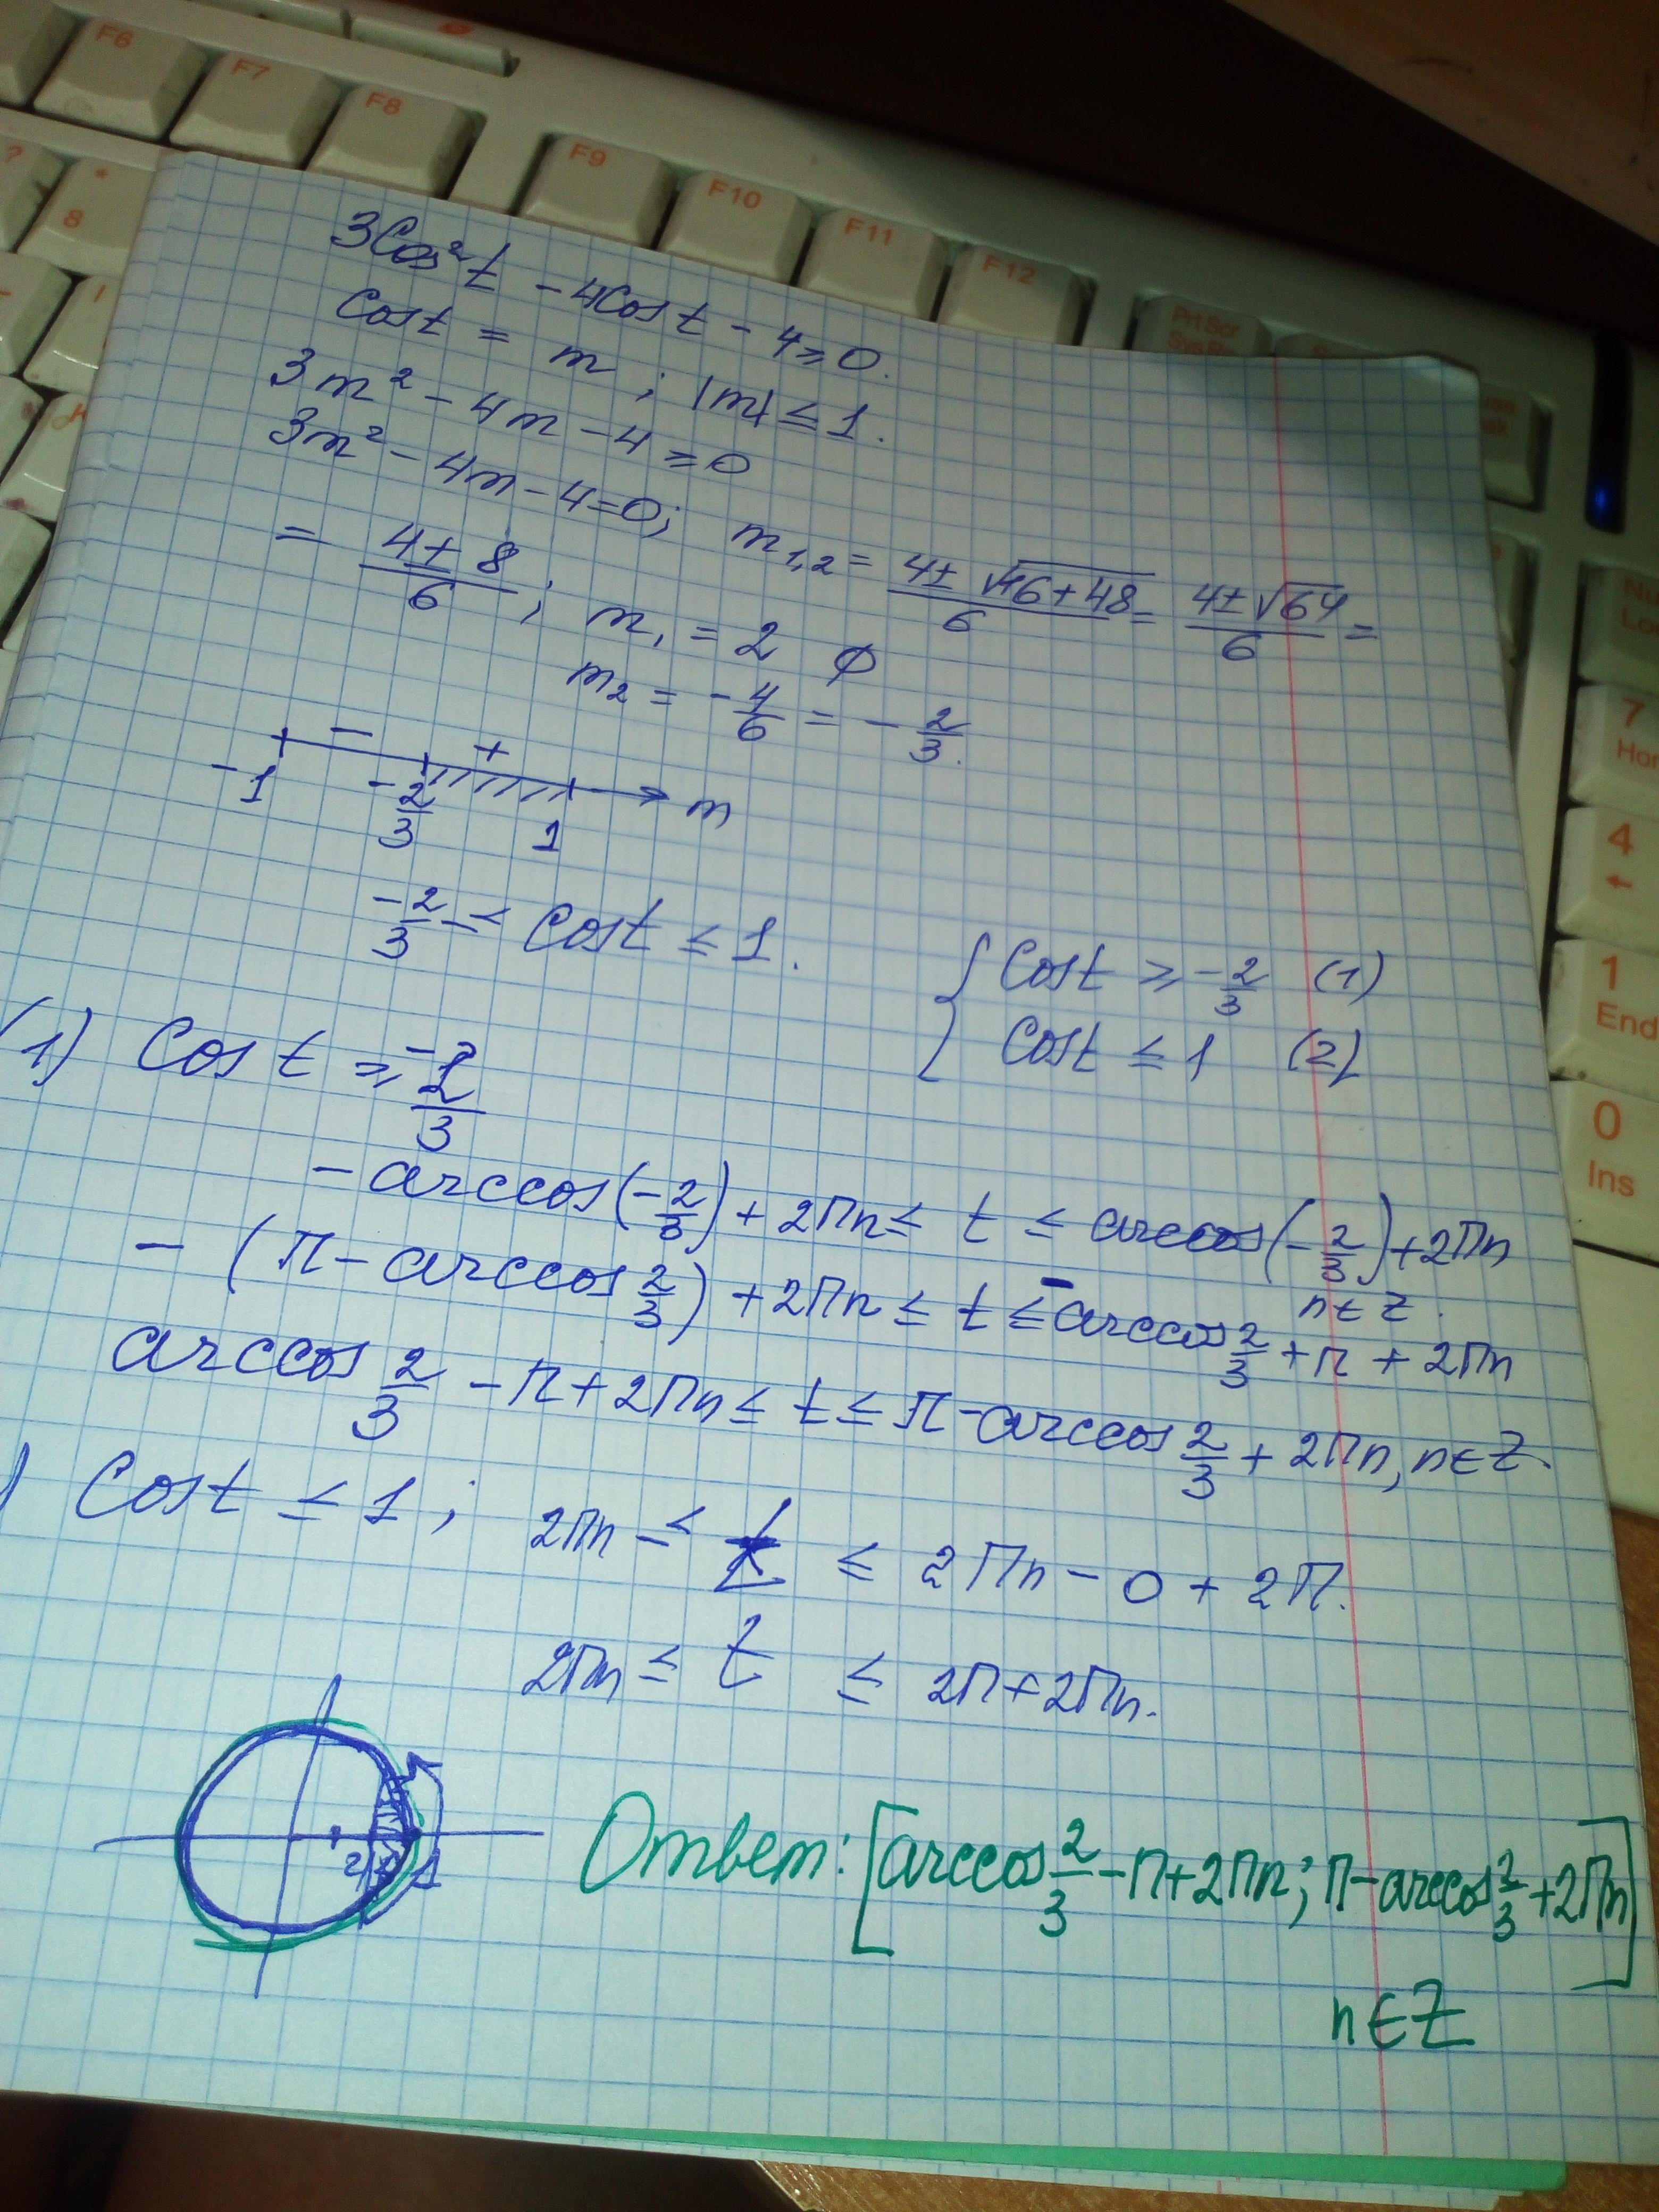 F6 F7 F8 F9 F10 F11 F12 PrtScr
SysRq
? * 8
7
4
←
1
End
0
Ins
3Cos²t - 4Cost - 4 ≥ 0.
Cost = m ; |m| ≤ 1.
3m² - 4m - 4 ≥ 0
3m² - 4m - 4 = 0; m₁,₂ = (4 ± √(16+48))/6 = (4 ± √64)/6 =
= (4 ± 8)/6 ; m₁ = 2 ∅
m₂ = -4/6 = -2/3.
- +
-1 -2/3 1 m
-2/3 ≤ Cost ≤ 1.
{ Cost ≥ -2/3 (1)
Cost ≤ 1 (2)
(1) Cos t ≥ -2/3
- arccos(-2/3) + 2Πn ≤ t ≤ arccos(-2/3) + 2Πn
n ∈ Z.
- (π - arccos 2/3) + 2Πn ≤ t ≤ -arccos 2/3 + π + 2Πn
arccos 2/3 - π + 2Πn ≤ t ≤ π - arccos 2/3 + 2Πn, n ∈ Z.
) Cost ≤ 1 ; 2Πn ≤ t ≤ 2Πn - 0 + 2Π.
2Πn ≤ t ≤ 2Π + 2Πn.
1
Ответ: [arccos 2/3 - π + 2Πn; π - arccos 2/3 + 2Πn]
n ∈ Z